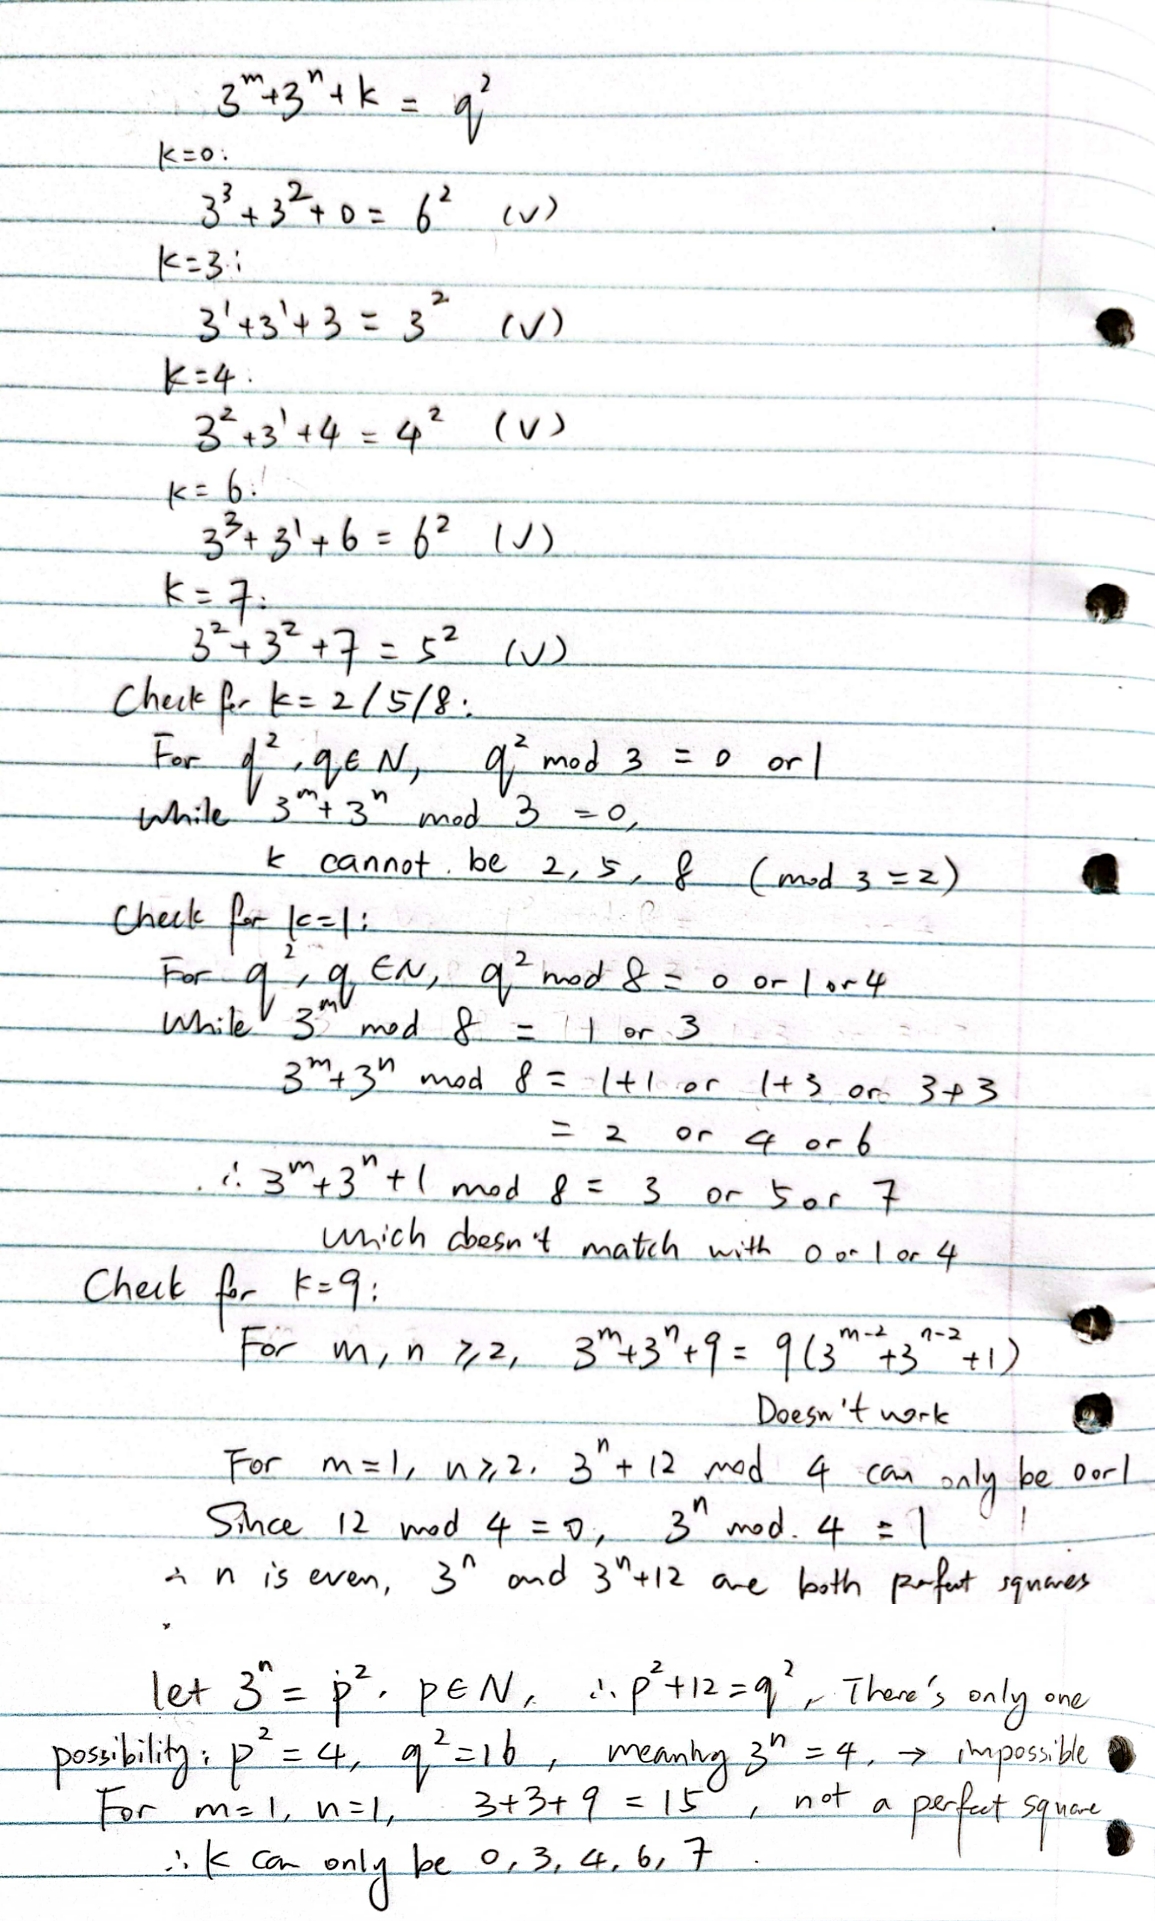 3^m+3^n+k = q^2
k=0:
3^3+3^2+0 = 6^2 (√)
k=3:
3^1+3^1+3 = 3^2 (√)
k=4:
3^2+3^1+4 = 4^2 (√)
k=6:
3^3+3^1+6 = 6^2 (√)
k=7:
3^2+3^2+7 = 5^2 (√)
Check for k=2/5/8:
For q^2, q∈N, q^2 mod 3 = 0 or 1
while 3^m+3^n mod 3 = 0,
k cannot be 2, 5, 8 (mod 3 = 2)
Check for k=1:
For q^2, q∈N, q^2 mod 8 = 0 or 1 or 4
While 3^m mod 8 = 1 or 3
3^m+3^n mod 8 = 1+1 or 1+3 or 3+3
= 2 or 4 or 6
∴ 3^m+3^n+1 mod 8 = 3 or 5 or 7
which doesn't match with 0 or 1 or 4
Check for k=9:
For m, n ≥2, 3^m+3^n+9 = 9(3^{m-2}+3^{n-2}+1)
Doesn't work
For m=1, n≥2. 3^n+12 mod 4 can only be 0 or 1
Since 12 mod 4 = 0, 3^n mod. 4 = 1
∴ n is even, 3^n and 3^n+12 are both perfect squares
let 3^n = p^2. p∈N, ∴ p^2+12=q^2, There's only one
possibility: p^2=4, q^2=16, meaning 3^n=4, → impossible
For m=1, n=1, 3+3+9 = 15, not a perfect square
∴ k can only be 0, 3, 4, 6, 7.